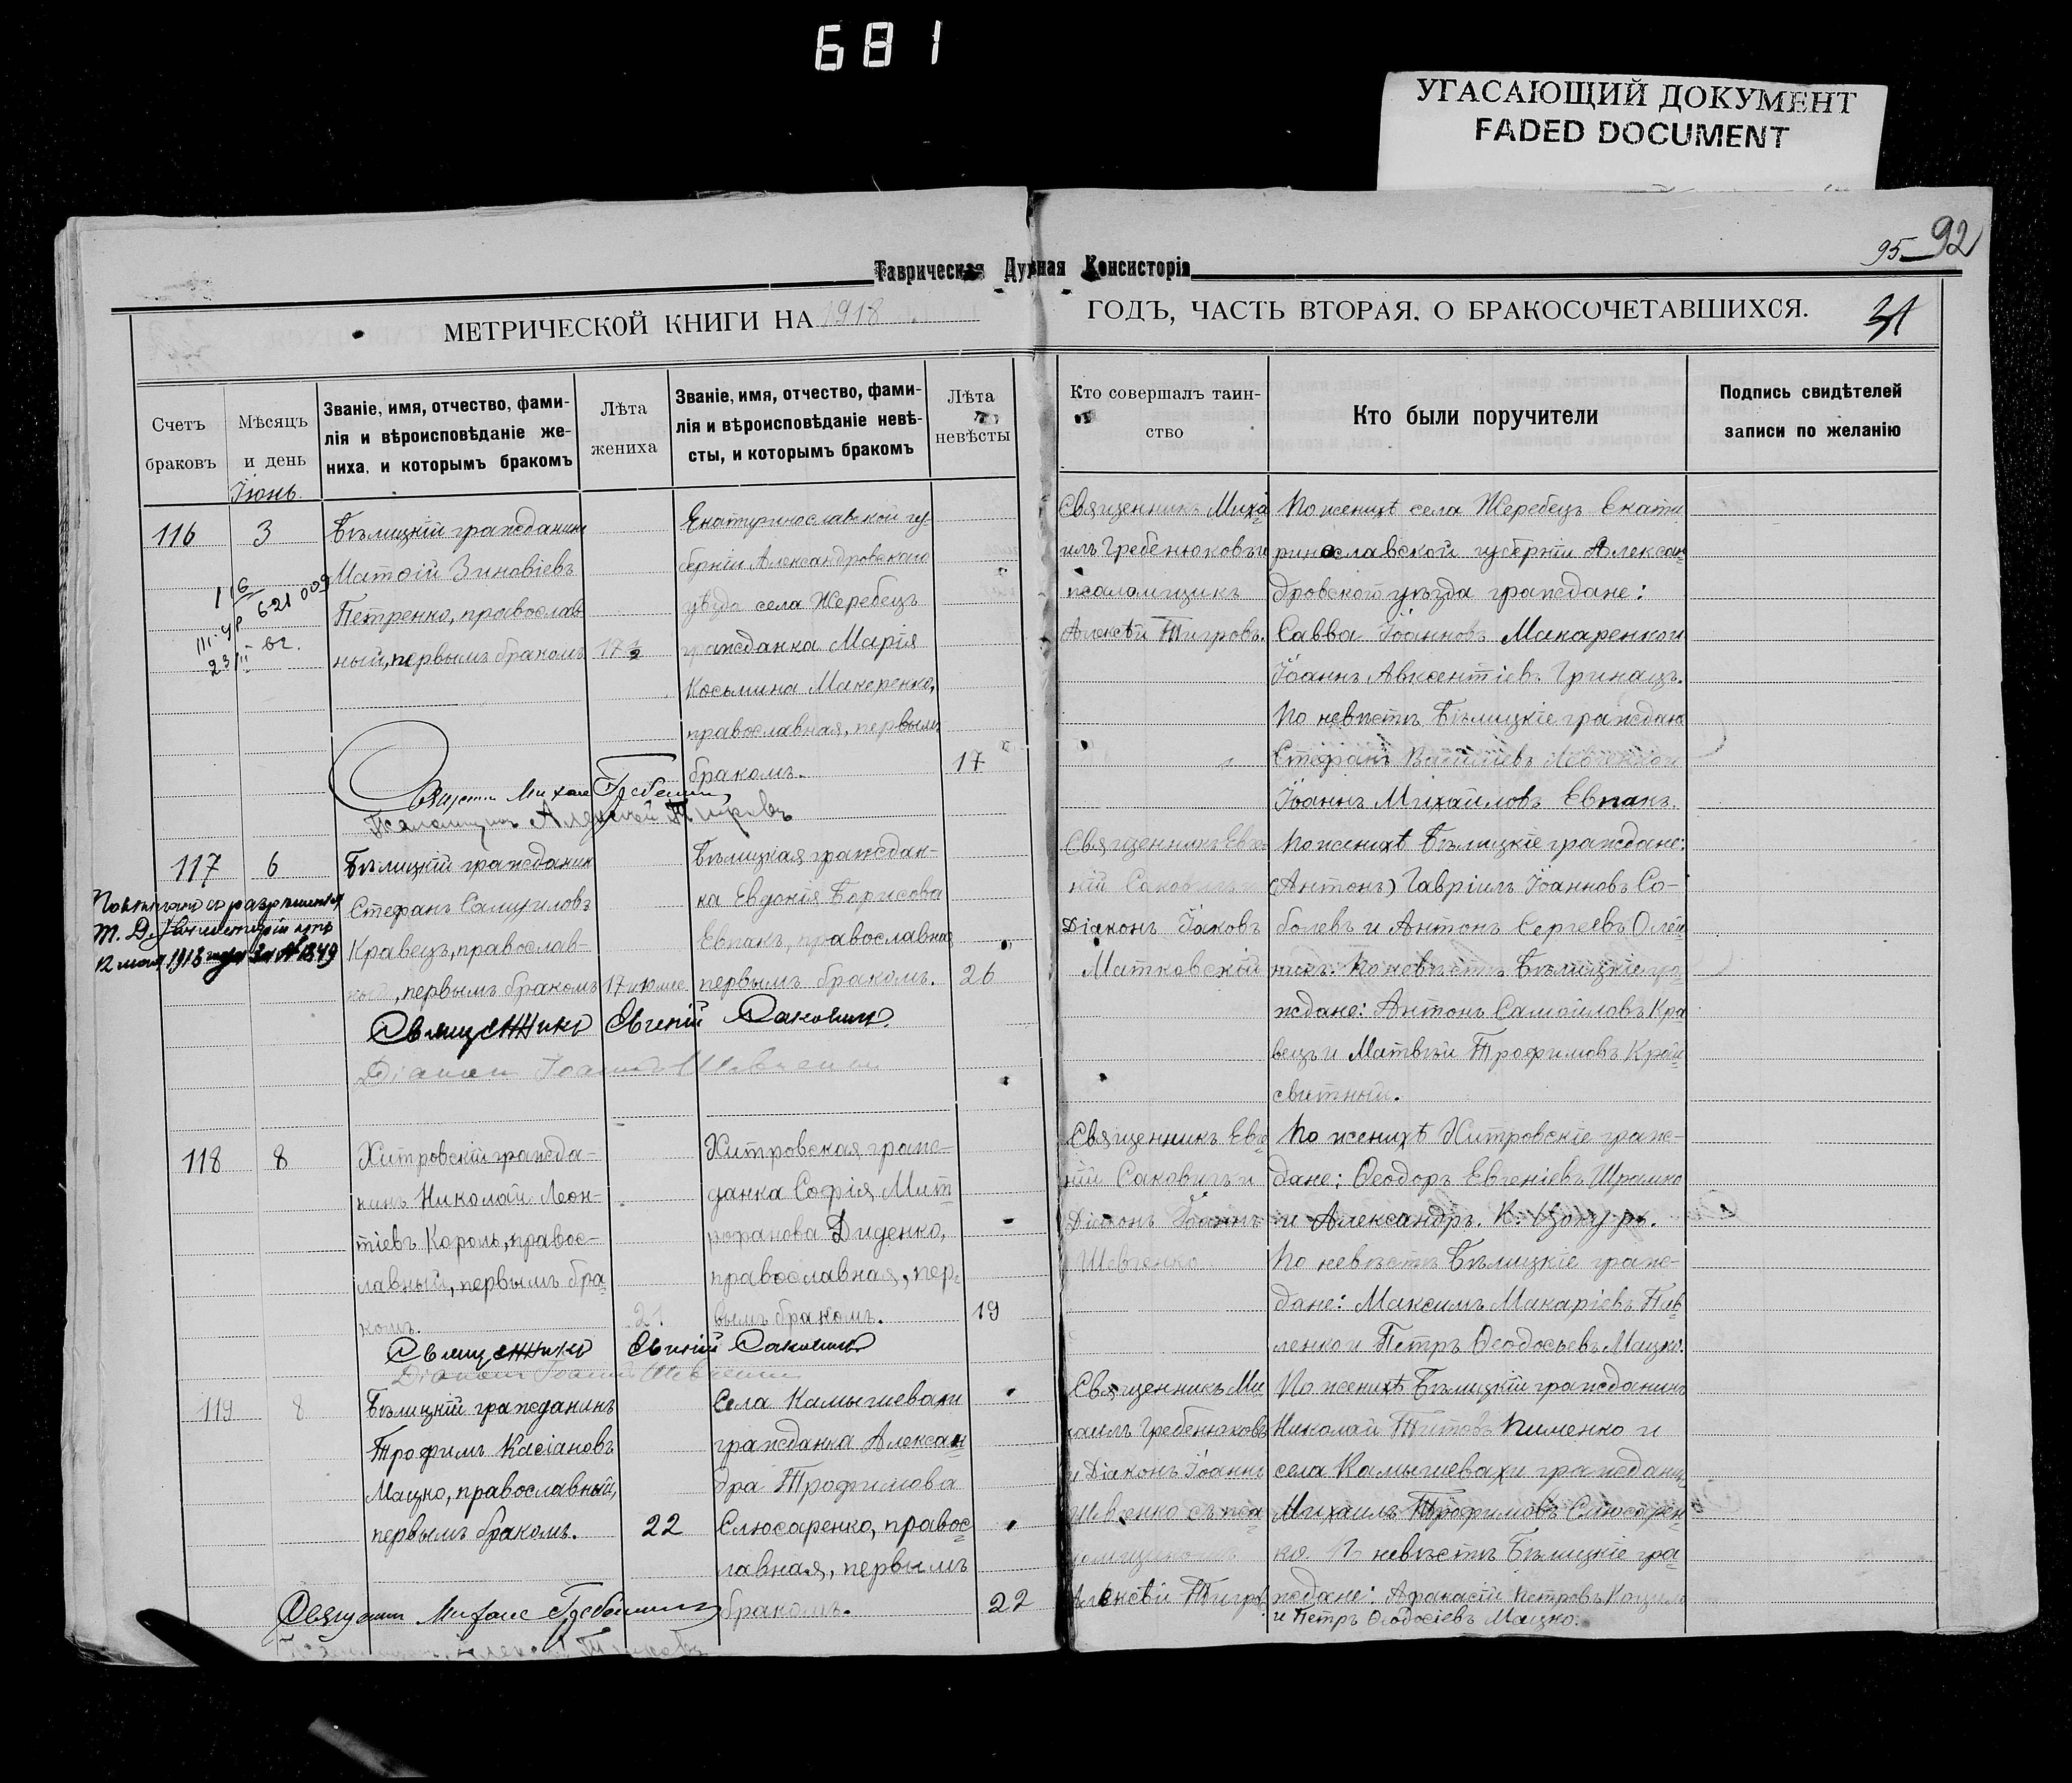 681
УГАСАЮЩИЙ ДОКУМЕНТ
FADED DOCUMENT
95 92
Таврическая Духовная Консисторія
МЕТРИЧЕСКОЙ КНИГИ НА 1918
ГОДЪ, ЧАСТЬ ВТОРАЯ, О БРАКОСОЧЕТАВШИХСЯ.
Счетъ браковъ
Мѣсяцъ и день
Званіе, имя, отчество, фами-
лія и вѣроисповѣданіе же-
ниха, и которымъ бракомъ
Лѣта жениха
Званіе, имя, отчество, фами-
лія и вѣроисповѣданіе невѣ-
сты, и которымъ бракомъ
Лѣта невѣсты
Кто совершалъ таин-
ство
Кто были поручители
Подпись свидѣтелей
записи по желанію
Іюнь.
116
3
Бѣлицкій гражданинъ
Матѳій Зиновіевъ
Петренко, православ-
ный, первымъ бракомъ
Екатеринославской гу-
берніи Александровскаго
уѣзда села Жеребецъ
гражданка Марія
Косьмина Макаренко,
православная, первымъ
бракомъ.
17
Священникъ Миха-
илъ Гребенюковъ и
псаломщикъ
Алексѣй Тигровъ.
По женихѣ села Жеребецъ Екате-
ринославской губерніи Алексан-
дровскаго уѣзда граждане:
Савва Іоанновъ Макаренко и
Іоаннъ Авксентіевъ Гринацъ.
По невѣстѣ Бѣлицкіе граждане
Стефанъ Васильевъ Левченко и
Іоаннъ Михайловъ Евпакъ.
117
6
12 мая 1918 года за № 1349
Бѣлицкій гражданинъ
Стефанъ Самуиловъ
Кравецъ, православ-
ный, первымъ бракомъ
Бѣлицкая граждан-
ка Евдокія Борисова
Евпакъ, православная
первымъ бракомъ.
26
Священникъ Евгеній Саковичъ
Священникъ Евге-
ній Саковичъ и
Діаконъ Іаковъ
Матковскій
По женихѣ Бѣлицкіе граждане:
(Антонъ) Гавріилъ Іоанновъ Со-
болевъ и Антонъ Сергѣевъ Олей-
никъ. По невѣстѣ Бѣлицкіе гра-
ждане: Антонъ Самойловъ Кра-
вецъ и Матвѣй Трофимовъ Край-
свитный.
118
8
Хитровскій гражда-
нинъ Николай Леон-
тіевъ Король, правос-
лавный, первымъ бра-
комъ.
21
Хитровская граж-
данка Софія Мит-
рофанова Диденко,
православная, пер-
вымъ бракомъ.
19
Священникъ Евгеній Саковичъ
Діаконъ Іоаннъ Шевченко
Священникъ Евге-
ній Саковичъ и
Діаконъ Іоаннъ
Шевченко
По женихѣ Хитровскіе граж-
дане: Ѳеодоръ Евгеніевъ Шрамко
и Александръ. К. Цокуръ.
По невѣстѣ Бѣлицкіе граж-
дане: Максимъ Макаріевъ Пав-
ленко и Петръ Ѳеодосьевъ Мацко.
119
8
Бѣлицкій гражданинъ
Трофимъ Касіановъ
Мацко, православный,
первымъ бракомъ.
22
Села Камышевахи
гражданка Алексан-
дра Трофимова
Слюсаренко, правос-
лавная, первымъ
бракомъ.
22
Священникъ Ми-
хаилъ Гребенюковъ
и Діаконъ Іоаннъ
Шевченко съ пса-
ломщикомъ
Алексѣй Тигров.
По женихѣ Бѣлицкій гражданинъ
Николай Титовъ Пименко и
села Камышевахи гражданинъ
Михаилъ Трофимовъ Слюсарен-
ко. По невѣстѣ Бѣлицкіе гра-
ждане: Аѳанасій Петровъ
и Петръ Ѳеодосіевъ Мацко.